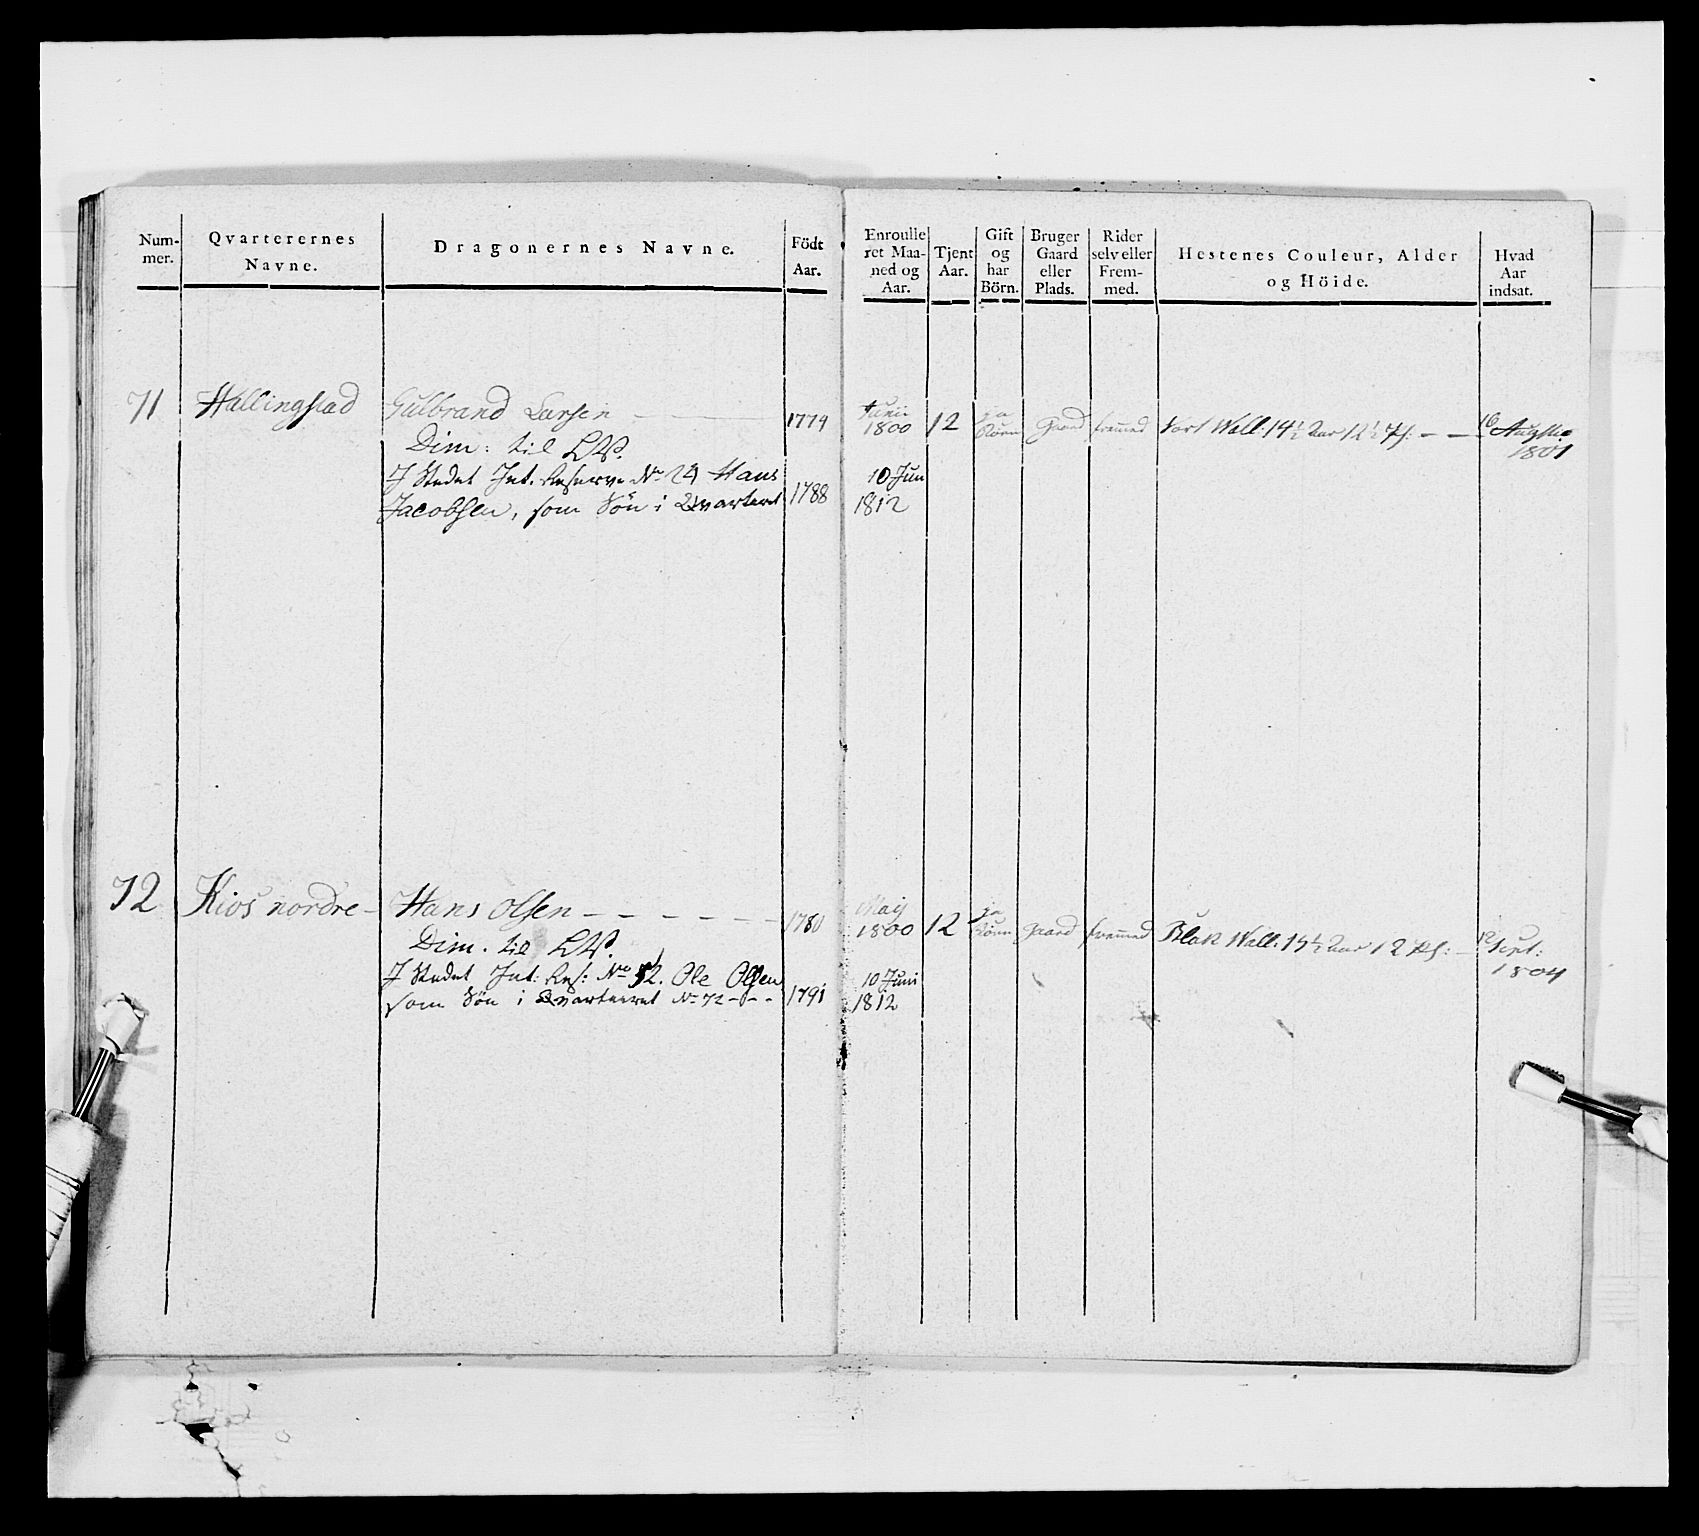 Num-
mer.
Qvarterernes
Navne.
Dragonernes Navne.
Födt
Aar.
Enroulle
ret Maa-
ned og
Aar.
Tjent
Aar.
Gift
og
har
Börn.
Bruger
Gaard
eller
Plads.
Rider
selv eller
Frem-
med.
Hestenes Couleur, Alder
og Höide.
Hvad
Aar
indsat.
71 Hallingstad Gulbrand Larsen 1779 Junii 1800 12 ja Börn Gaard fremmed Sort Wall: 14½ Aar 12½ 1801
Dim: til LW.
I Stedet Int. Reserve No 24 Hans
Jacobsen, som Sön i Qvarteret 1788 10 Juni 1812
72 Kios nordre - Hans Olsen - - - - - - 1780 Maij 1800 12 ja Börn gaard fremmed Blak Wall: 15½ Aar 12 Sept: 1804
Dim. til LW.
I Stedet Int: Res: No 52. Ole Olsen
som Sön i Qvarteeret No 72 - - - 1791 10 Juni 1812